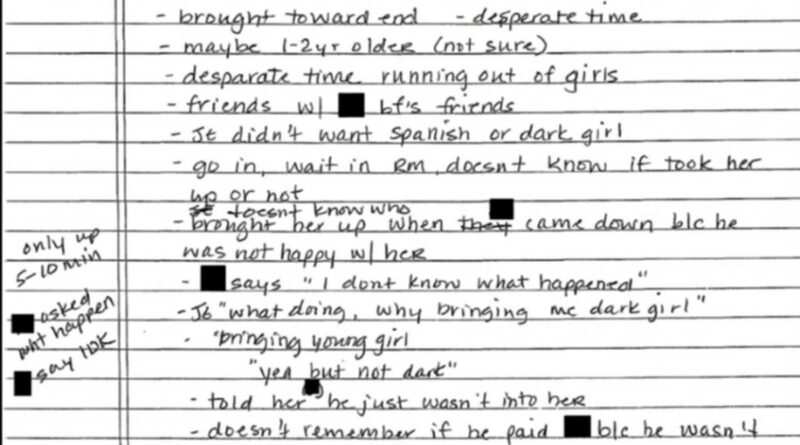 - brought toward end - desperate time
- maybe 1-2yr older (not sure)
- desparate time running out of girls
- friends w/ bf's friends
- JE didn't want spanish or dark girl
- go in, wait in RM, doesnt know if took her
up or not
doesnt know who
- brought her up when they came down b/c he
was not happy w/ her
only up
5-10 min
- says "I dont know what happened"
asked
wht happen
- JE "what doing, why bringing me dark girl"
say IDK
- "bringing young girl
"yea but not dark"
- told her he just wasn't into her
- doesn't remember if he paid b/c he wasn't